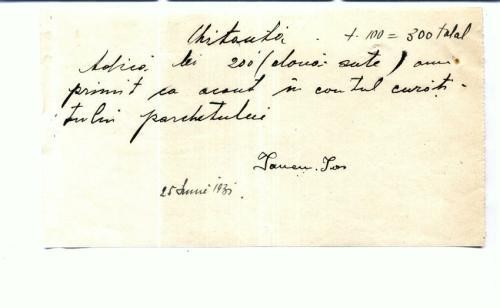 Chitanta. + 100 = 300 total
Adică lei 200 (două sute) am
primit ca acont în contul curăți-
tului parchetului
25 Iunie 193